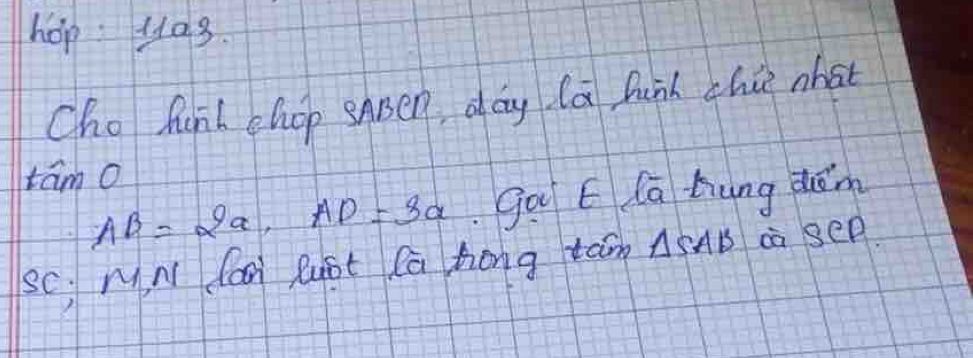 hớp: 11a3.
Cho hình chóp SABCD, đáy là hình chữ nhật
tâm O
AB = 2a, AD = 3a. Gọi E là trung điểm
SC; M,N lần lượt là trọng tâm ΔSAB và SCD.